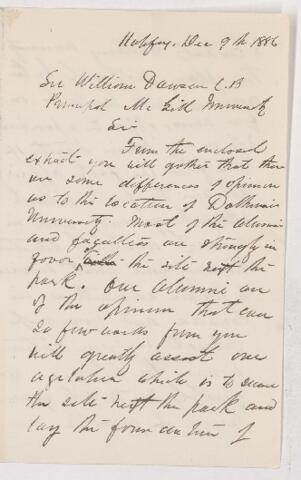 Halifax, Dec 9th 1886
Sir William Dawson C.B
Principal McGill University
Sir
From the enclosed
extracts you will gather that there
are some differences of opinion
as to the location of Dalhousie
University. Most of the Alumni
and faculties are strongly in
favor the site next the
park. Our Alumni are
of the opinion that
a few words from you
will greatly assist our
agitation which is to secure
the site next the park and
lay the foundation of